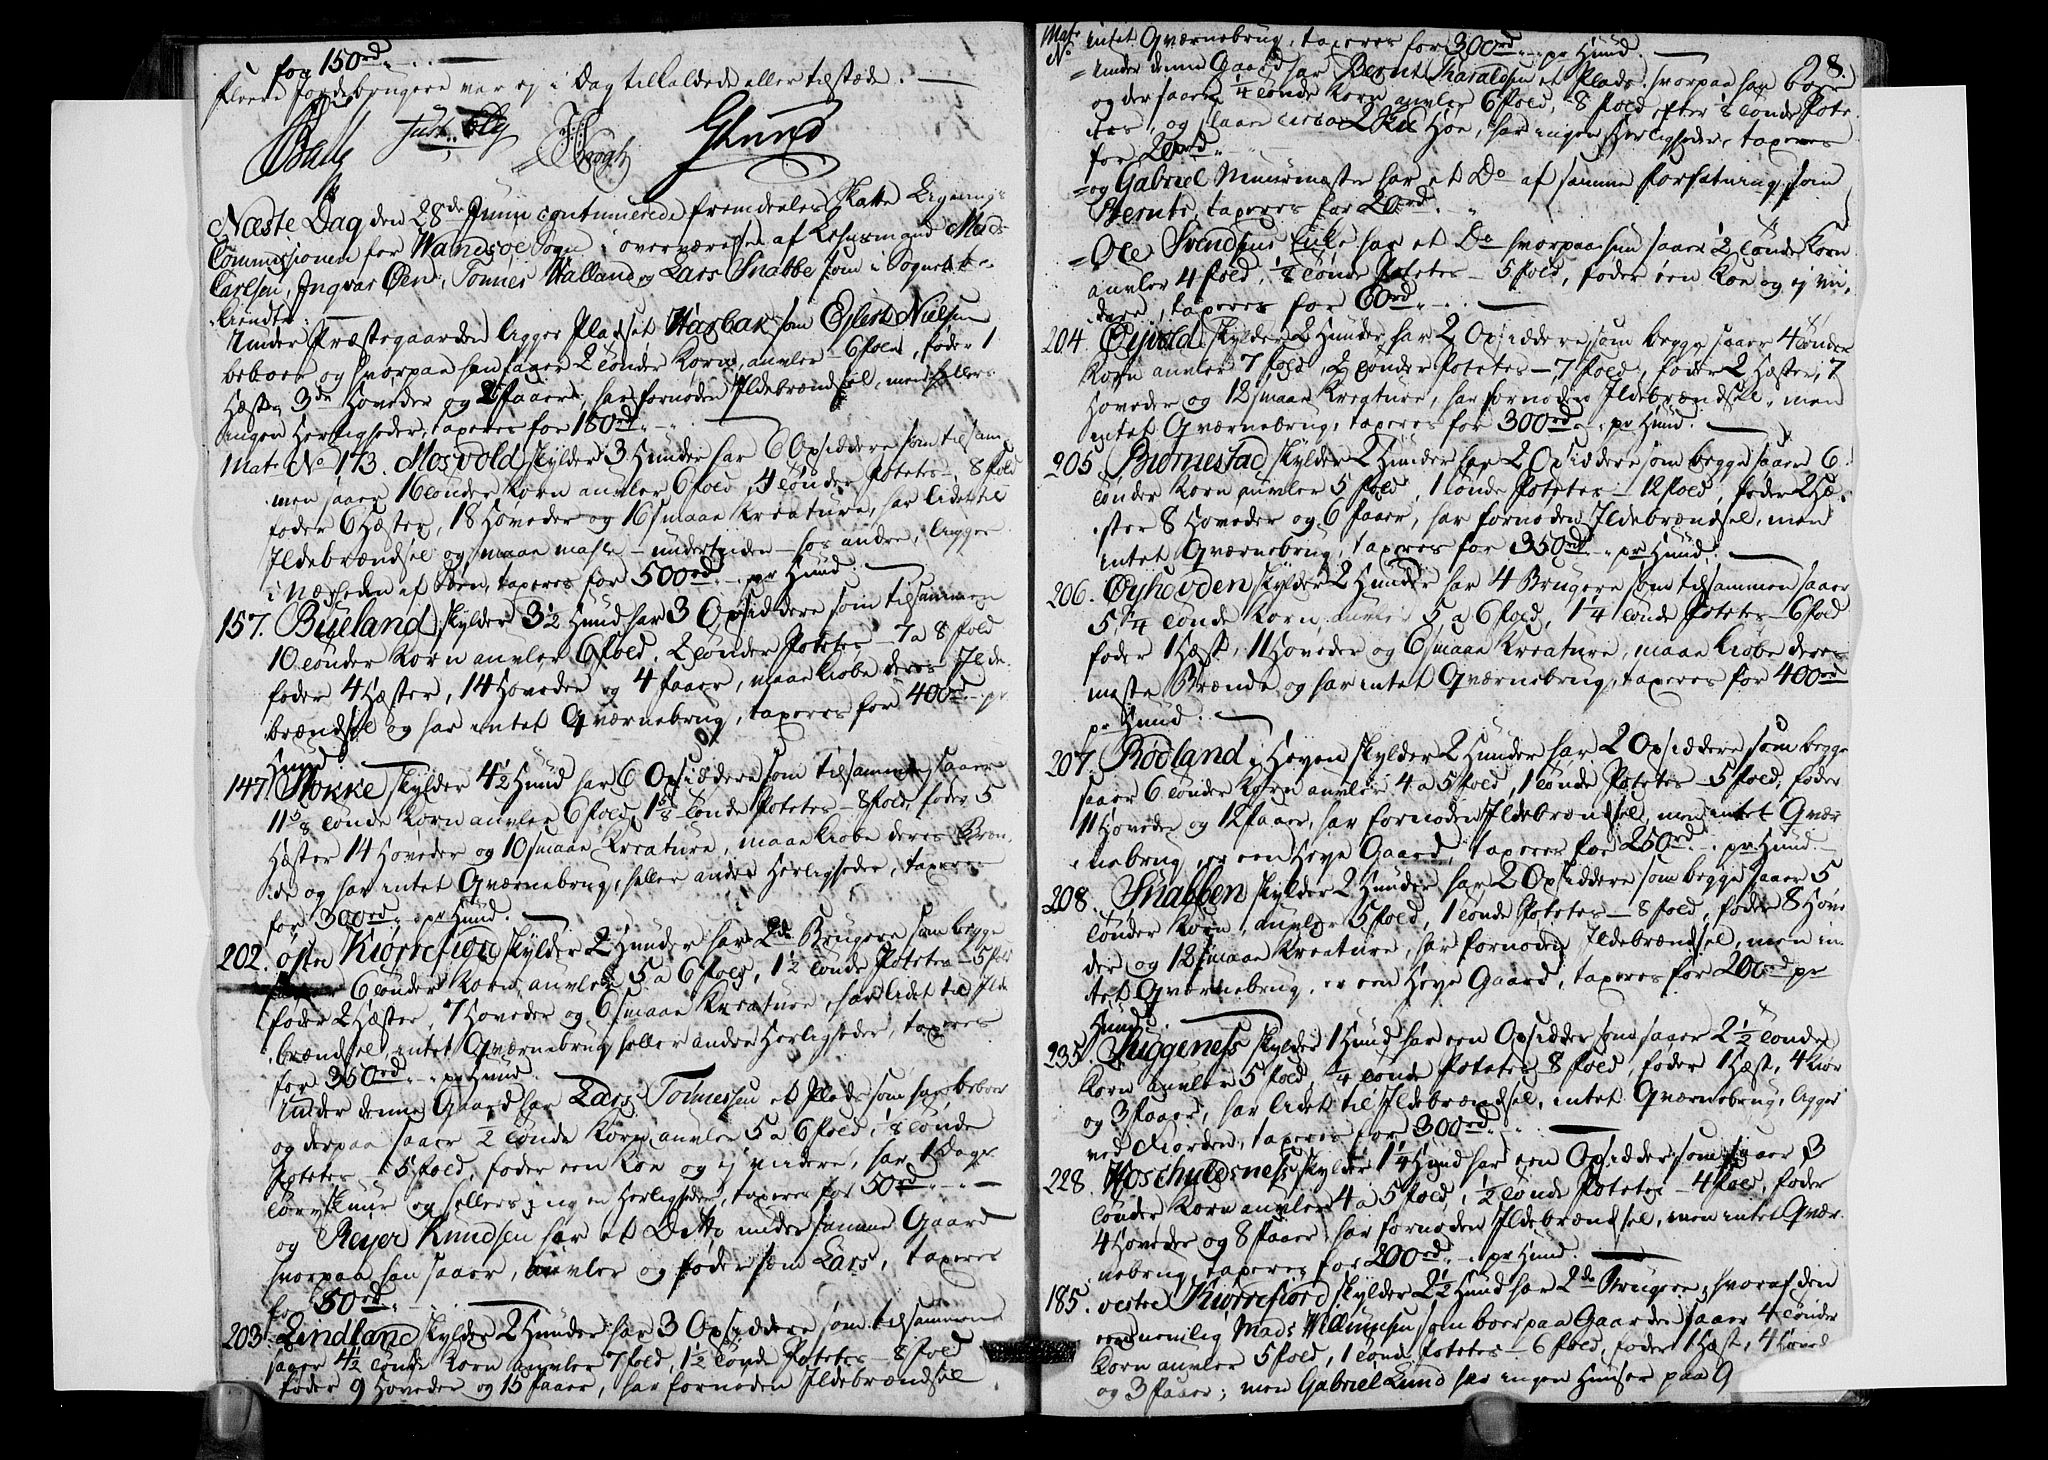 for 150rd
fleere Jordebrugere var ej i Dag tilkaldede eller tilstæde.
Balle Just Ely H Krogh G Lund
Næste Dag den 28de Junii continuerede fremdeeles Skatte Lignings
Commissionen for Wandsøe Sogn i overværelse af Lehnsmand Mads
Carlsen, Ingvar Øen, Tønnes Walland og Lars Snabbe som i Sognet be-
kiendte.
Under Præstegaarden ligger Pladset Harbak som Eylert Nielsen
beboer og hvorpaa han saaer 2 tønder Korn, auvler 6 fold, føder 1
Hæst, 3de Hoveder og 2 faarer, har fornøden Ildebrændsel, men ellers
ingen Herligheder, taxeres for 180rd
Mat. No 173. Mosvold skylder 3 Hunder har 6 Opsiddere som tilsam-
men saaer 16 tønder Korn auvler 6 fold, 4 tønder Potetes, 8 fold
føder 6 Hæster, 18 Hoveder og 16 smaae Kreature, har lidet til
Ildebrændsel og maae male - undertiden - hos andre, ligger
i Nærheden af Søen, taxeres for 500rd pr Hund.
157. Büeland skylder 3½ Hund har 3 Opsiddere som tilsammen
10 tønder Korn auvler 6 fold, 2 tønder Potetes - 7 a 8 fold
føder 4 Hæster, 14 Hoveder og 4 faarer, maae kiøbe deres Ilde-
brændsel og har intet Qværnebrug, taxeres for 400rd pr
Hund
147. Stokke skylder 4½ Hund har 6 Opsiddere som tilsammen saaer
11⅝ tønde Korn auvler 6 fold, 1⅝ tønde Potetes - 8 fold, føder 5
Hæster 14 Hoveder og 10 smaae Kreature, maae kiøbe deres Bræn-
de og har intet Qværnebrug, heller andre Herligheder, taxeres
for 300rd pr Hund.
202. østre Kiørrefiord skylder 2 Hunder har 2de Brugere som begge
saaer 6 tønder Korn, auvler 5 a 6 fold, 1½ tønde Potetes - 5 fold
føder 2 Hæster, 7 Hoveder og 6 smaae Kreature, har lidet til Ilde-
brændsel, intet Qværnebrug heller andre Herligheder, taxeres
for 350rd pr Hund.
Under denne Gaard har Lars Tolnessen et Plads som han beboer
og derpaa saaer ½ tønde Korn, auvler 5 a 6 fold, ⅛ tønde
Potetes - 5 fold, føder een Koe og ej videre, har 1 Dags
Tørvskuur og ellers ingen Herligheder, taxeres for 50rd
og Reyer Knudsen har et Ditto under samme Gaard
hvorpaa han saaer, auvler og føder som Lars, taxeres
for 50rd
203. Lindland skylder 2 Hunder har 3 Opsiddere som tilsammen
saaer 4½ tønde Korn auvler 7 fold, 1½ tønde Potetes - 8 fold
føder 9 Hoveder og 15 faarer, har fornøden Ildebrændsel
Mat.
No
28.
intet Qværnebrug, taxeres for 300rd pr Hund.
Under denne Gaard har Bernt Haraldsen et Plads, hvorpaa han boer
og der saaer ¼ tønde Korn auvler 6 fold, 8 fold efter ⅛ tønde Pote-
tes, og slaaer circa 2 Læs Høe, har ingen Herligheder, taxeres
for 20rd
og Gabriel Muurmæster har et Do af samme forfatning, som
Bernts, taxeres for 20rd
Ole Svendsens Enke har et Do hvorpaa hun saaer ½ tønde Korn
auvler 4 fold, ⅛ tønde Potetes - 5 fold, føder een Koe og ej vi-
dere, taxeres for 60rd
204. Eyvold skylder 2 Hunder har 2 Opsiddere som begge saaer 4 tønder
Korn auvler 7 fold, 2 tønder Potetes - 7 fold, føder 2 Hæster, 7
Hoveder og 12 smaae Kreature, har fornøden Ildebrændsel, men
intet Qværnebrug, taxeres for 300rd pr Hund.
205. Biørnestad skylder 2 Hunder har 2 Opsiddere som begge saaer 6
tønder Korn auvler 5 fold, 1 tønde Potetes - 12 fold, føder 2 Hæ-
ster 8 Hoveder og 6 faarer, har fornøden Ildebrændsel, men
intet Qværnebrug, taxeres for 350rd pr Hund.
206. Øyhovden skylder 2 Hunder har 4 Brugere som tilsammen saaer
5¾ tønde Korn, auvler 5 a 6 fold, 1¼ tønde Potetes - 6 fold
føder 1 Hæst, 11 Hoveder og 6 smaae Kreature, maae kiøbe deres
meste Brænde og har intet Qværnebrug, taxeres for 400rd
pr Hund.
207. Rødland i Heyen skylder 2 Hunder har 2 Opsiddere som begge
saaer 6 tønder Korn auvler 4 a 5 fold, 1 tønde Potetes - 5 fold, føder
11 Hoveder og 12 faarer, har fornøden Ildebrændsel, men intet Qvær-
nebrug, er een Heye Gaard, taxeres for 250rd pr Hund.
208. Snabben skylder 2 Hunder har 2 Opsiddere som begge saaer 5
tønder Korn, auvler 5 fold, 1 tønde Potetes - 8 fold, føder 8 Hove-
der og 12 smaae Kreature, har fornøden Ildebrændsel, men in-
tet Qværnebrug, er een Heye Gaard, taxeres for 200rd pr
Hund.
235. Skiggeness skylder 1 Hund har een Opsidder som saaer 2½ tønde
Korn auvler 5 fold, ¼ tønde Potetes 8 fold, føder 1 Hæst, 4 Kiør
og 3 faarer, har lidet til Ildebrændsel, intet Qværnebrug, ligger
ved Fiorden, taxeres for 300rd
228. Hoschuldsness skylder 1¼ Hund har een Opsidder som saaer 3
tønder Korn auvler 4 a 5 fold, ½ tønde Potetes - 4 fold, føder
4 Hoveder og 8 faarer, har fornøden Ildebrændsel, men intet Qvær-
nebrug, taxeres for 200rd pr Hund.
185. vestre Kiørrefiord skylder 2½ Hund har 2de Brugere, hvoraf den
een nemlig Mads Willumsen som boer paa Gaarden saaer 4 tønder
Korn auvler 5 fold, 1 tønde Potetes - 6 fold, føder 1 Hæst, 4 Hoved
og 3 faarer; men Gabriel Lund har ingen Huuser paa G